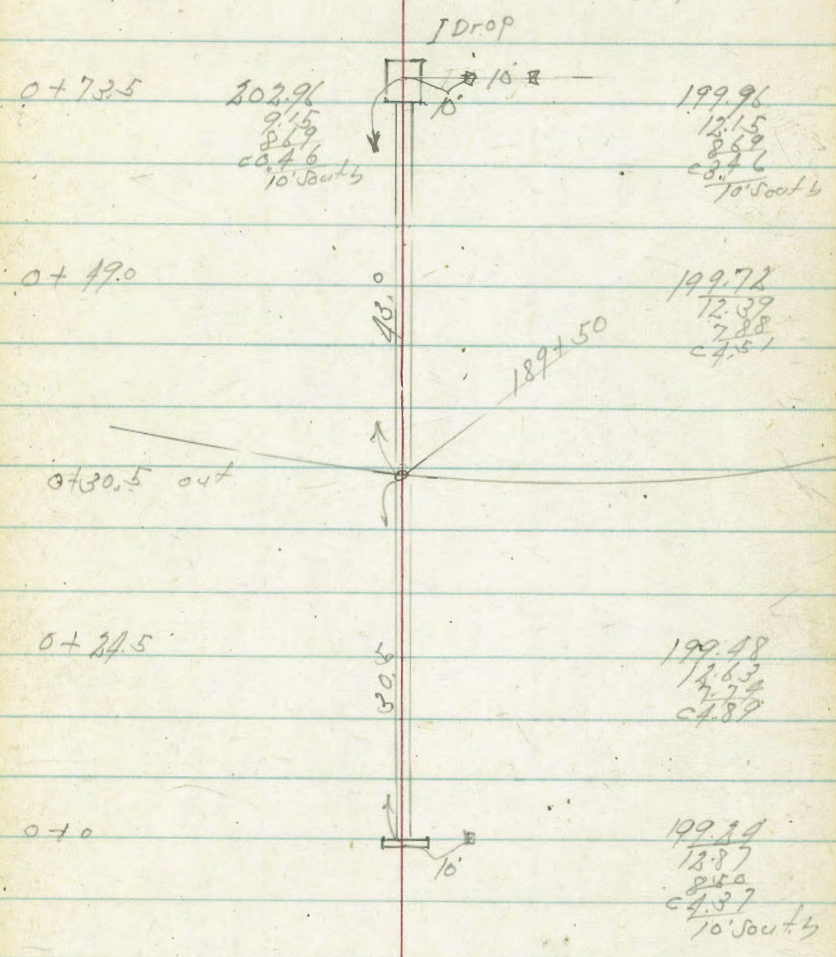 I Drop
10'
10'
0 + 73.5
202.96
9.15
8.69
c0.46
10' South
199.96
12.15
8.69
c3.46
10' South
0 + 49.0
43.0
199.72
12.39
7.88
c4.51
189+50
0+30.5 out
0 + 24.5
30.5
199.48
12.63
7.74
c4.89
0 + 0
10'
199.24
12.87
8.50
c4.37
10' South